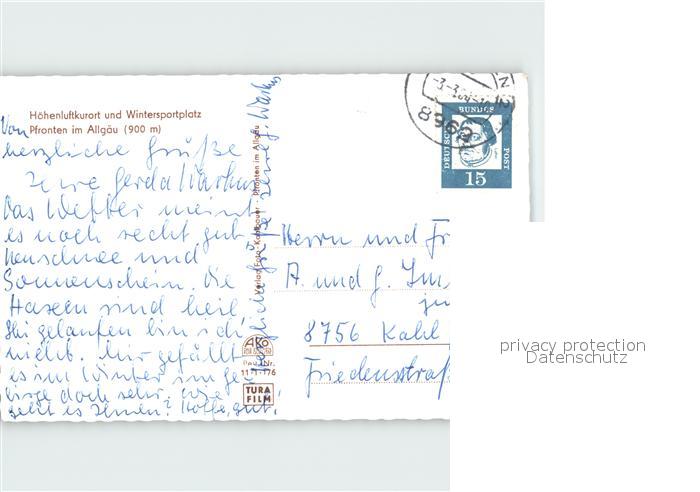 Höhenluftkurort und Wintersportplatz
Pfronten im Allgäu (900 m)
Von
herzliche Grüße
Ihre Gerda
Das Wetter meint
es noch recht gut
Neuschnee und
Sonnenschein. Die
Haxen sind heil
Ski gelaufen bin ich
nicht. Mir gefällt
es im Winter im Ge-
birge doch sehr. Wie
geht es Ihnen? Hoffe, gut!
Herzliche Grüße
Verlag Foto Pfronten im Allgäu
AKO
TURA
FILM
8962
DEUTSCHE
BUNDES
POST
15
Herrn und Fr
A. und G.
8756 Kahl
Friedensstraß
privacy protection
Datenschutz